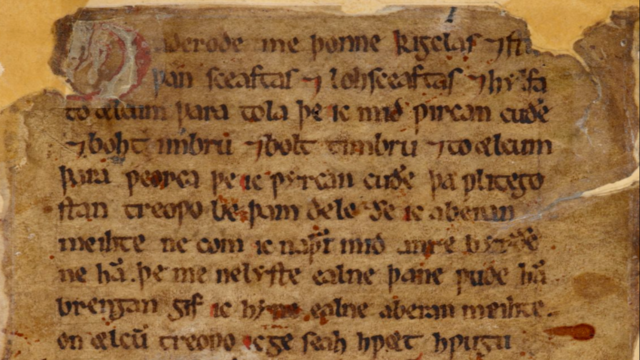 aderode me þonne kigclaſ ⁊ ſtu
þan ſceaftaſ ⁊ lohſceaftaſ ⁊ hylfa
to ælcum þara tola þe ic mid ƿircan cuðe
⁊ bohtimbrū ⁊ bolttimbru ⁊ to ælcum
þara ƿeorca þe ic ƿyrcan cuðe þa ƿlitego
ſtan treoƿo be þam dele ðe ic aberan
meihte ne com ic naþer mid anre byrðē
ne hā þe me ne lyſte ealne þane ƿude hā
brengan gif ic hyne ealne aberan meihte
on ælcū treoƿo ic ge ſeah hƿæt hƿugu